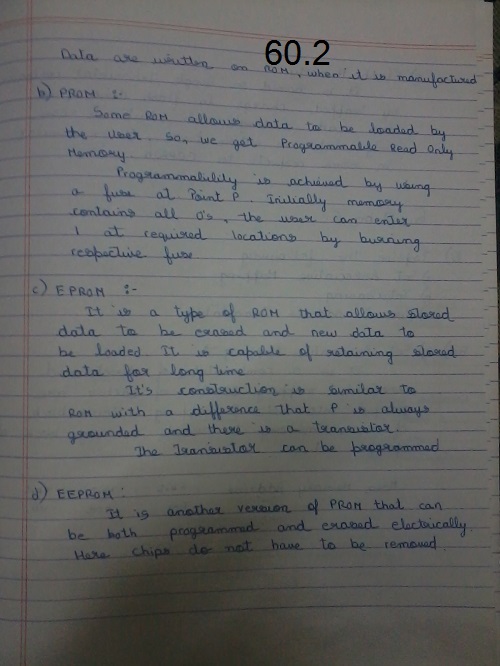 60.2
Data are written on ROM, when it is manufactured
b) PROM :-
Some ROM allows data to be loaded by
the user. So, we get Programmable Read Only
Memory.
Programmability is achieved by using
a fuse at Point P. Initially memory
contains all 0's, the user can enter
1 at required locations by burning
respective fuse
c) EPROM :-
It is a type of ROM that allows stored
data to be erased and new data to
be loaded. It is capable of retaining stored
data for long time
It's construction is similar to
ROM with a difference that P is always
grounded and there is a transistor.
The Transistor can be programmed
d) EEPROM :
It is another version of PROM that can
be both programmed and erased electrically.
Here chips do not have to be removed.